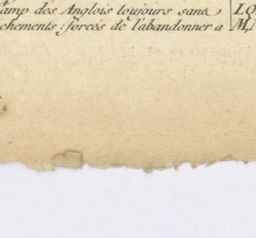 camp des Anglois toujours sans
chements : forcés de l'abandonner a
LO
M.